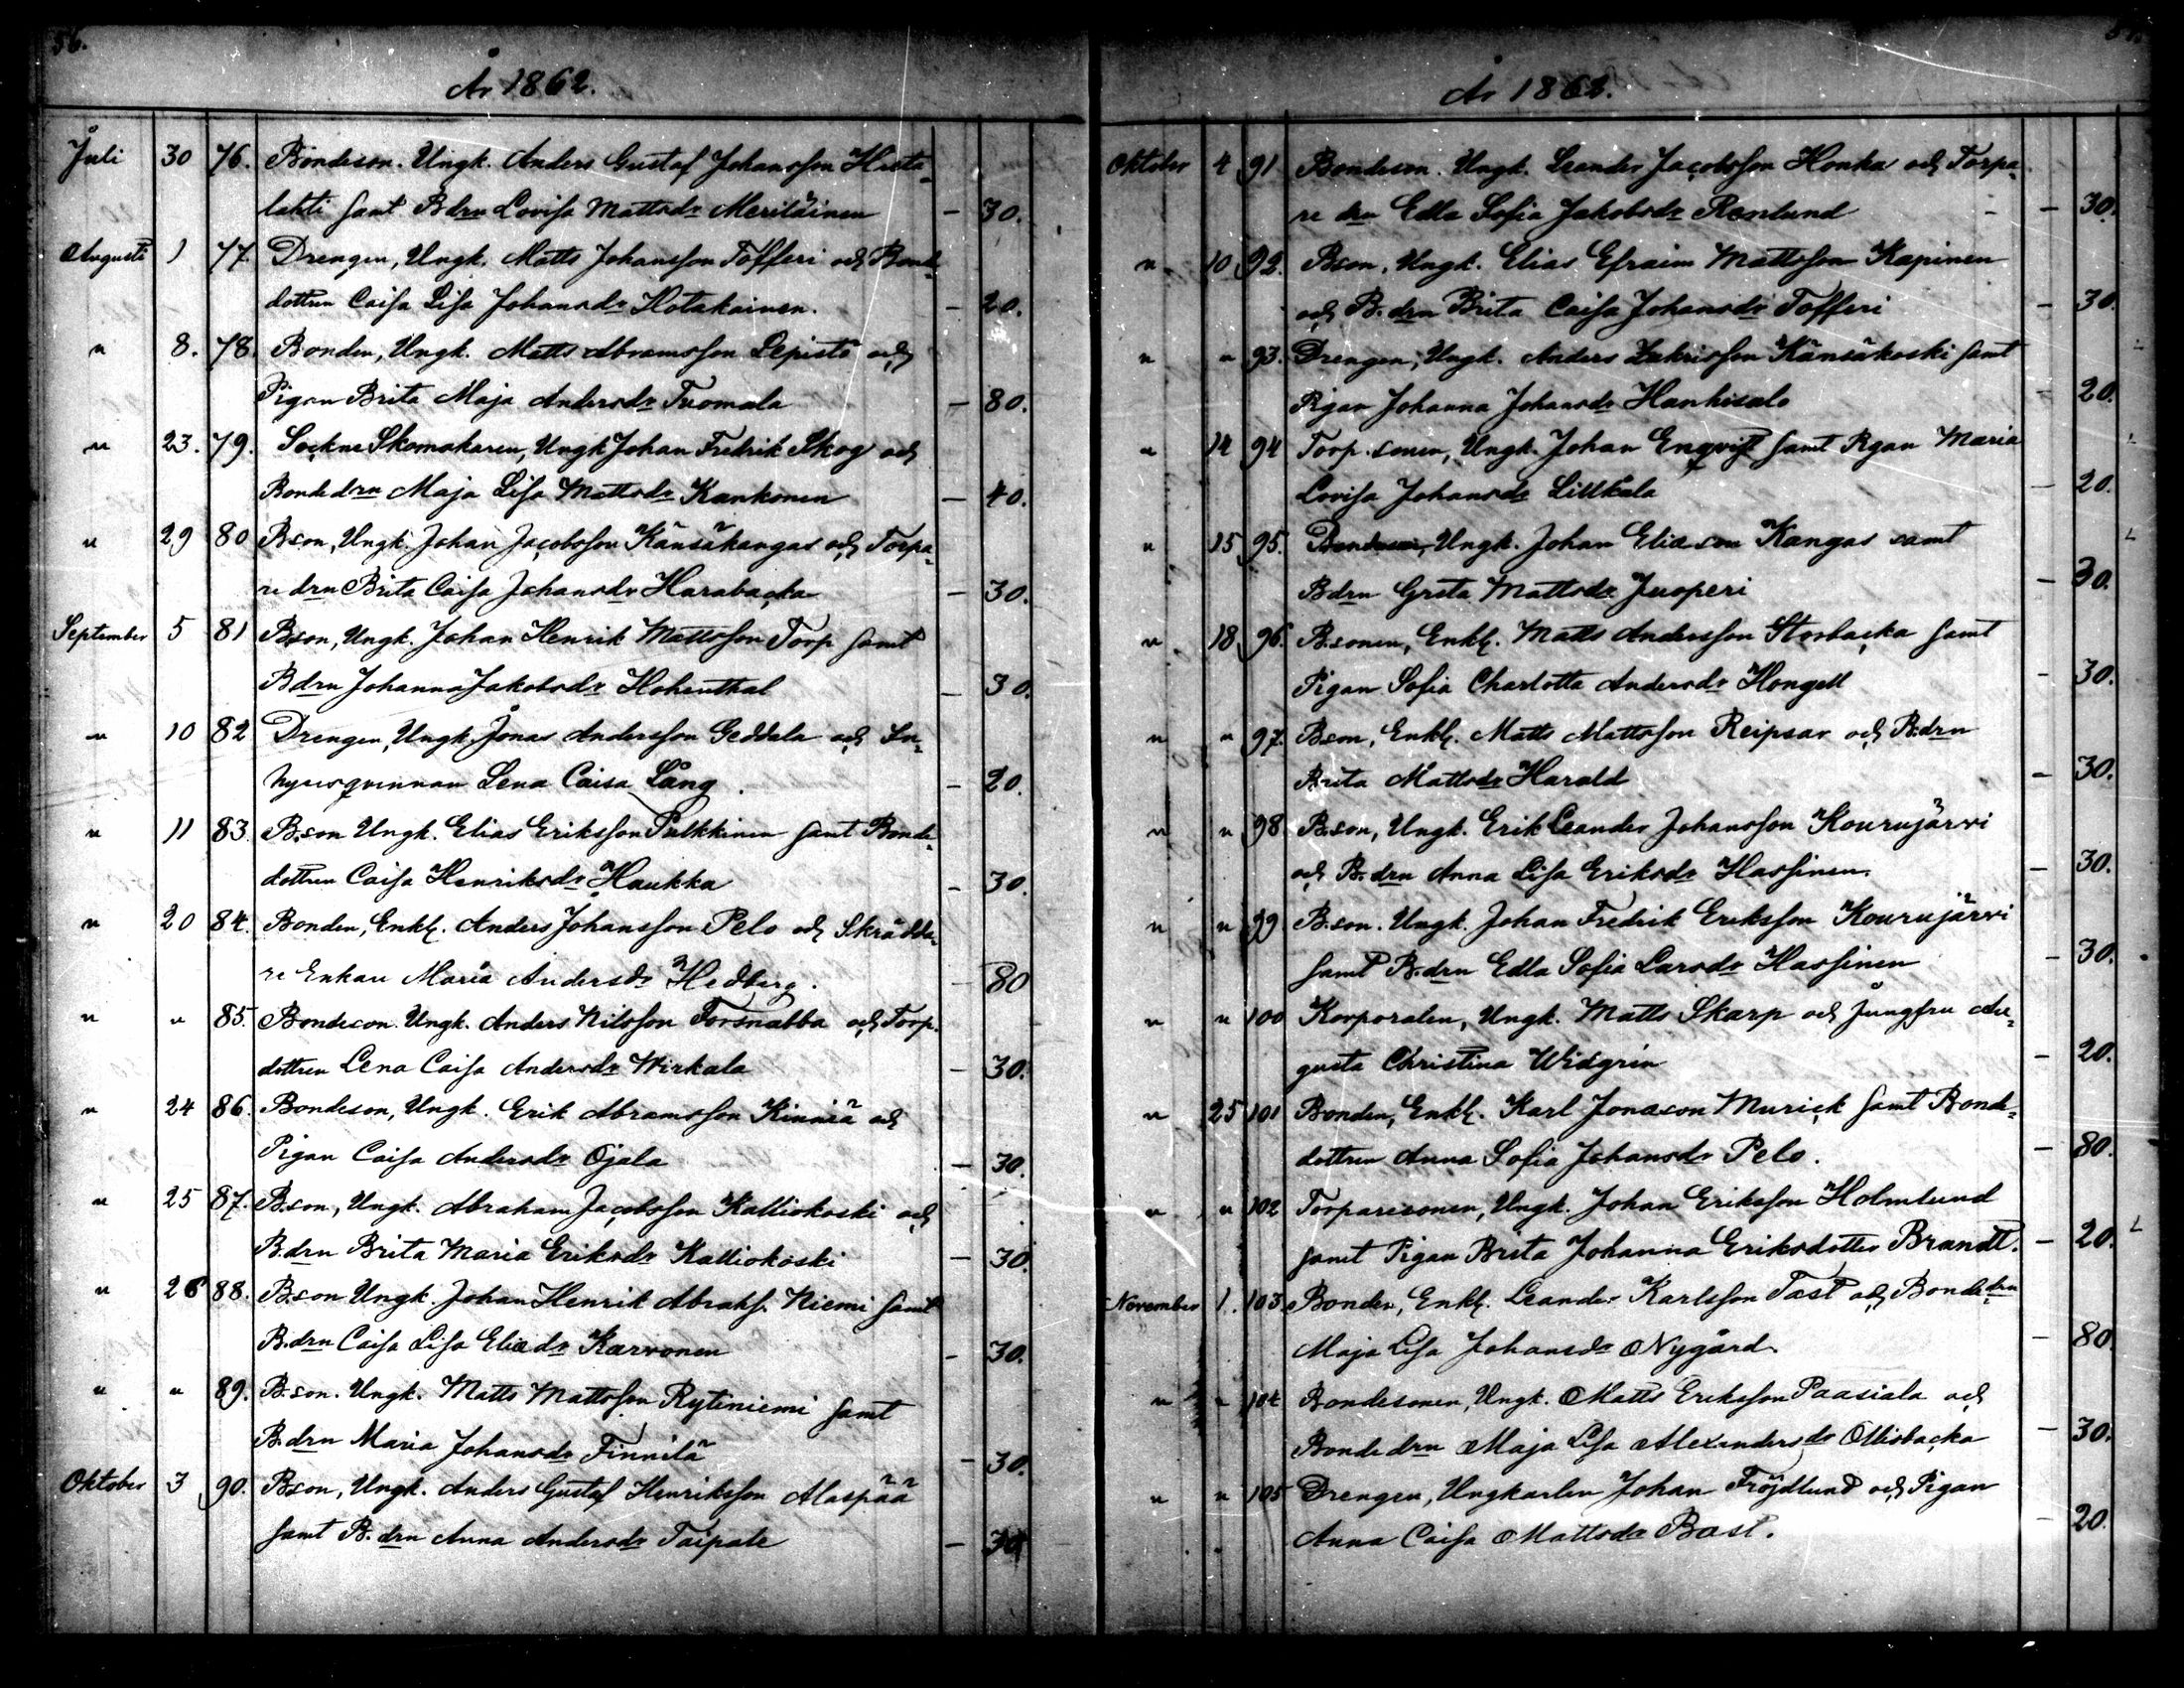 56.
År 1862.
Juli 30 76. Bondeson. Ungk. Anders Gustaf Johansson Hieta-
lahti samt Bdrn Lovisa Mattsdr Meriläinen — 30.
Augusti 1 77. Drengen, Ungk. Matts Johansson Töfferi och Bonde-
dottren Caisa Lisa Johansdr Hotakainen. — 20.
" 8. 78. Bonden, Ungk. Matts Abramsson Lepistö och
Pigan Brita Maja Andersdr Tuomala — 80.
" 23. 79. Sockne Skomakaren, Ungk Johan Fredrik Skog och
Bonde drn Maja Lisa Mattsdr Kankonen — 40.
" 29 80 Bson, Ungk. Johan Jacobsson Känsäkangas och Torpa-
re drn Brita Caisa Johansdr Harabacka — 30.
September 5 81 Bson, Ungk. Johan Henrik Mattsson Torp samt
Bdrn Johanna Jakobsdr Hohenthal — 30.
" 10 82 Drengen, Ungk. Jonas Andersson Geddala och In-
hyresqvinnan Lena Caisa Lång. — 20.
" 11 83. B.son Ungk. Elias Eriksson Pulkkinen samt Bonde-
dottren Caisa Henriksdr Haukka — 30.
" 20 84. Bonden, Enkl. Anders Johansson Pelo och Skrädda-
re Enkan Maria Andersdr Hedberg. — 80
" " 85. Bondeson. Ungk. Anders Nilsson Forsnabba och Torp.
dottren Lena Caisa Andersdr Wirkala — 30.
" 24 86. Bondeson, Ungk. Erik Abramsson Kinniä och
Pigan Caisa Andersdr Öjala — 30.
" 25 87. B.son, Ungk. Abraham Jacobsson Kalliokoski och
B.drn Brita Maria Eriksdr Kalliokoski — 30.
" 26 88. B.son Ungk. Johan Henrik Abrahs. Niemi samt
B.drn Caisa Lisa Eliædr Karvonen — 30.
" " 89. B.son. Ungk. Matts Mattsson Rytiniemi samt
B.drn Maria Johansdr Finnilä — 30.
Oktober 3 90. B.son, Ungk. Anders Gustaf Henriksson Alaspää
samt B. drn Anna Andersdr Taipale — 30
År 1862.
Oktober 4 91 Bondeson. Ungk. Leander Jacobsson Honka och Torpa-
re drn Edla Sofia Jakobsdr Renlund — 30.
" 10 92. Bson, Ungk. Elias Efraim Mattsson Kapinen
och B. drn Brita Caisa Johansdr Töfferi — 30.
" " 93. Drengen, Ungk. Anders Zakrisson Känsäkoski samt
Pigan Johanna Johansdr Hanhisalo — 20.
" 14 94 Torp. sonen, Ungk. Johan Enqvist samt Pigan Maria
Lovisa Johansdr Littkala — 20.
" 15 95. Bondeson, Ungk. Johan Eliæson Kangas samt
Bdrn Greta Mattsdr Juoperi — 30.
" 18 96. B.sonen, Enkl. Matts Andersson Storbacka samt
Pigan Sofia Charlotta Andersdr Hongell — 30.
" " 97. Bson, Enkl. Matts Mattsson Reipsar och B.drn
Brita Mattsdr Harald — 30.
" " 98 B.son, Ungk. Erik Leander Johansson Kourujärvi
och B. drn Anna Lisa Eriksdr Hassinen. — 30.
" " 99 B.son. Ungk. Johan Fredrik Eriksson Kourujärvi
samt B.drn Edla Sofia Larsdr Hassinen — 30.
" " 100 Korporalen, Ungk. Matts Skarp och Jungfru Au-
gusta Christina Widgrén — 20.
" 25 101 Bonden, Enkl. Karl Jonæson Murick samt Bonde-
dottren Anna Sofia Johansdr Pelo. — 80.
" " 102 Torparesonen, Ungk. Johan Eriksson Holmlund
samt Pigan Brita Johanna Eriksdotter Brandt. — 20.
November 1. 103 Bonden, Enkl. Leander Karlsson Tast och Bondedrn
Maja Lisa Johansdr Nygård. — 80
" " 104 Bondesonen, Ungk. Matts Eriksson Paasiala och
Bonde drn Maja Lisa Alexandersdr Ollisbacka — 30.
" " 105 Drengen, Ungkarlen Johan Fröjdlund och Pigan
Anna Caisa Mattsdr Bast. — 20.